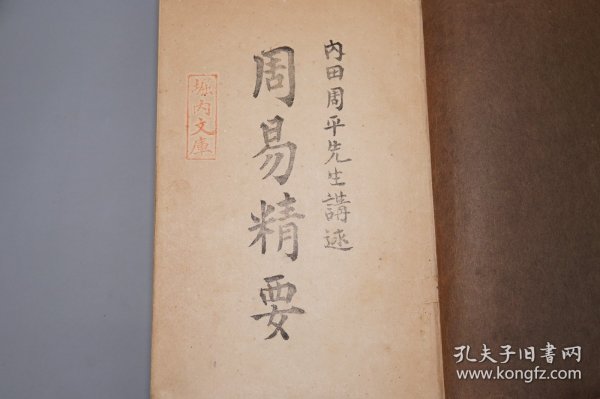 内田周平先生講述
周易精要
堀内文庫
孔夫子旧书网
www.kongfz.com